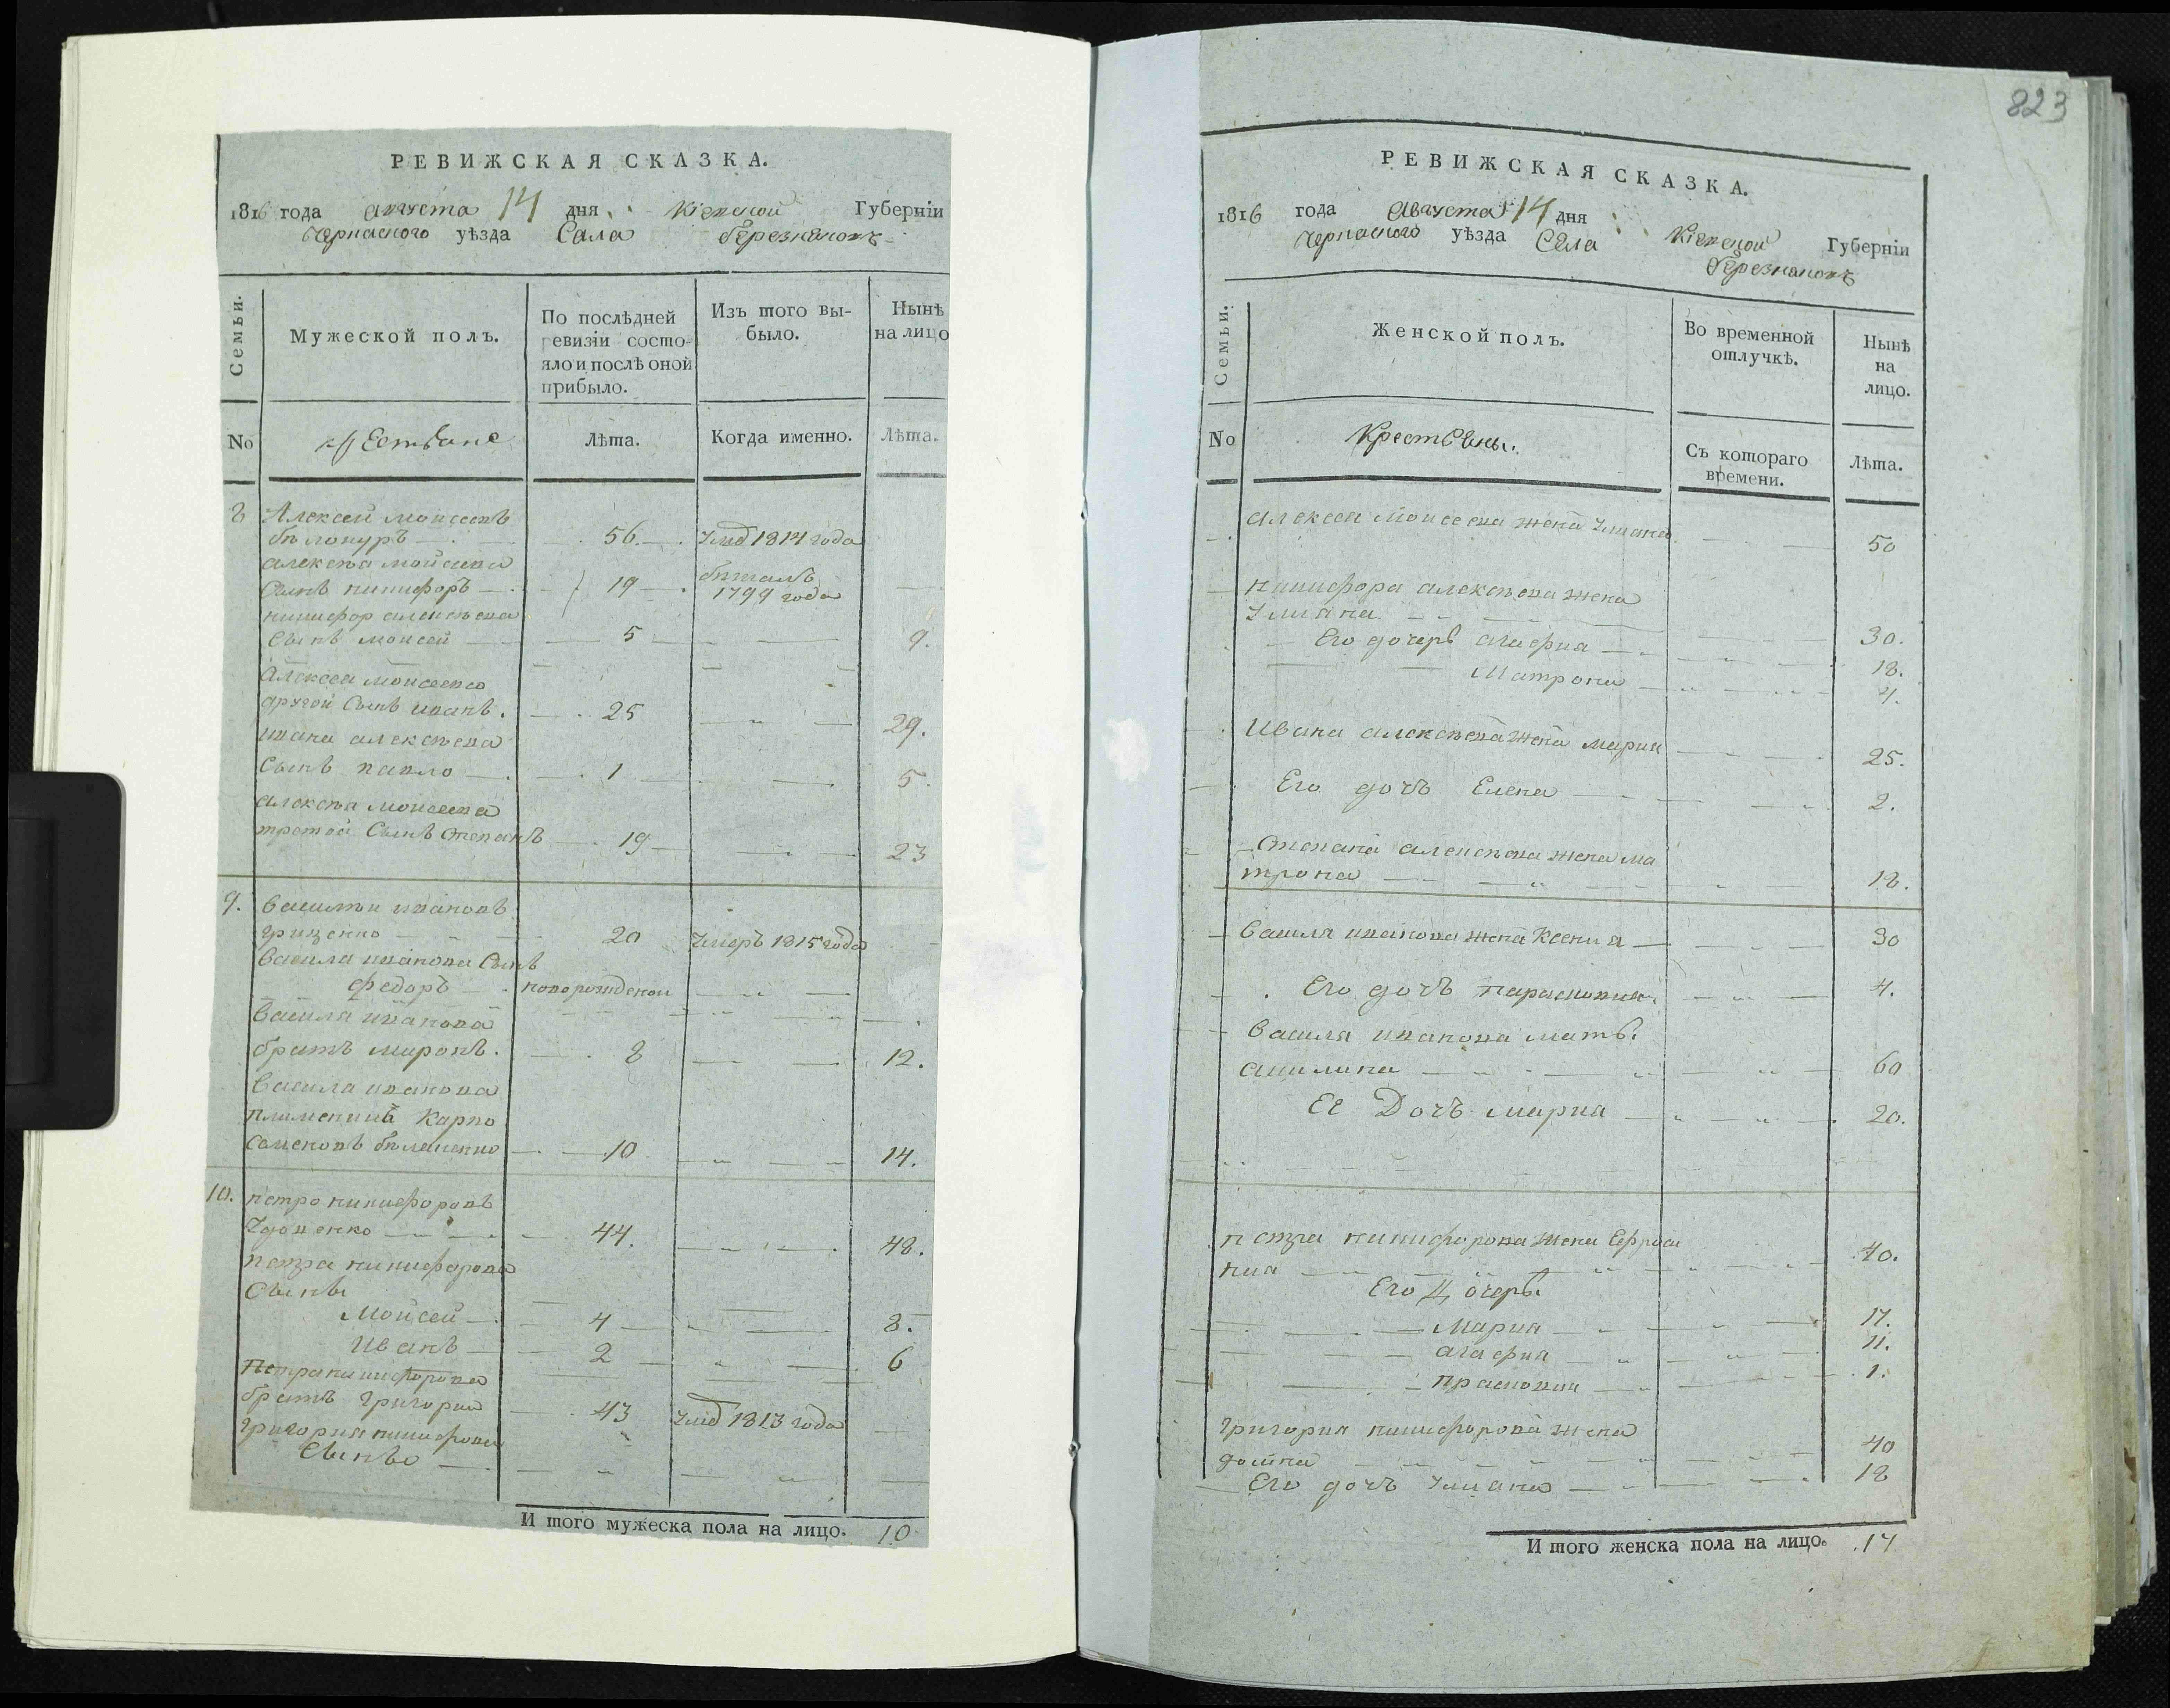 РЕВИЖСКАЯ СКАЗКА.
1816 года августа 14 дня Кіевской Губерніи
Черкаского уѣзда Села Березняковъ
Семьи.
Мужеской полъ.
По послѣдней ревизіи состо-
яло и послѣ оной
прибыло.
Изъ того вы-
было.
Нынѣ
на лицо
No
крестьяне
Лѣта.
Когда именно.
Лѣта.
8 Алексей Моисеевъ
бѣлокуръ 56. 1814 года
алексѣя мойсеева
Сынъ никифоръ 19 бѣжалъ
1799 года
никифор алексѣева
Сынъ моисей 5 9.
Алексея моисеева
другой Сынъ иванъ. 25 29.
ивана алексѣева
Сынъ павло 1 5.
алексѣя моисеева
третой Сынъ Степанъ 19 23
9. Василий ивановъ
гриценко 20 Умеръ 1815 года
Василя иванова Сынъ
федоръ новорожденои
Василя иванова
братъ миронъ. 8 12.
Василя иванова
племеникъ Карпо
Семеновъ 10 14.
10. петро никифоровъ
Удовенко 44. 48.
петра никифорова
Сынъ
Мойсей 4 8.
Иванъ 2 6
Петра никифорова
братъ григорий 43 1813 года
григория никифорова
Сынъ
И того мужеска пола на лицо. 10
823
РЕВИЖСКАЯ СКАЗКА.
1816 года Августа 14 дня Кіевской Губерніи
Черкаского уѣзда Села Березняковъ
Семьи.
Женской полъ.
Во временной
отлучкѣ.
Нынѣ
на
лицо.
No
Съ котораго
времени.
Лѣта.
алексея Моисеева жена Улияна 50
никифора алексѣева жена
Улияна 30.
Его дочерѣ агафия 18.
Матрона 4.
Ивана алексѣева жена мария 25.
Его дочъ Елена 2.
Степана алексѣева жена ма
трона 18.
Василя иванова жена Ксения 30
Его дочъ параскевия. 4.
Василя иванова мать.
акилина 60
Ее Дочъ мария 20.
петра никифорова жена Ефроси
ния 40.
Его Дочерѣ
Мария 17.
агафия 11.
1.
григория никифорова жена
домна 40
Его дочъ Улияна 18
И того женска пола на лицо. 14